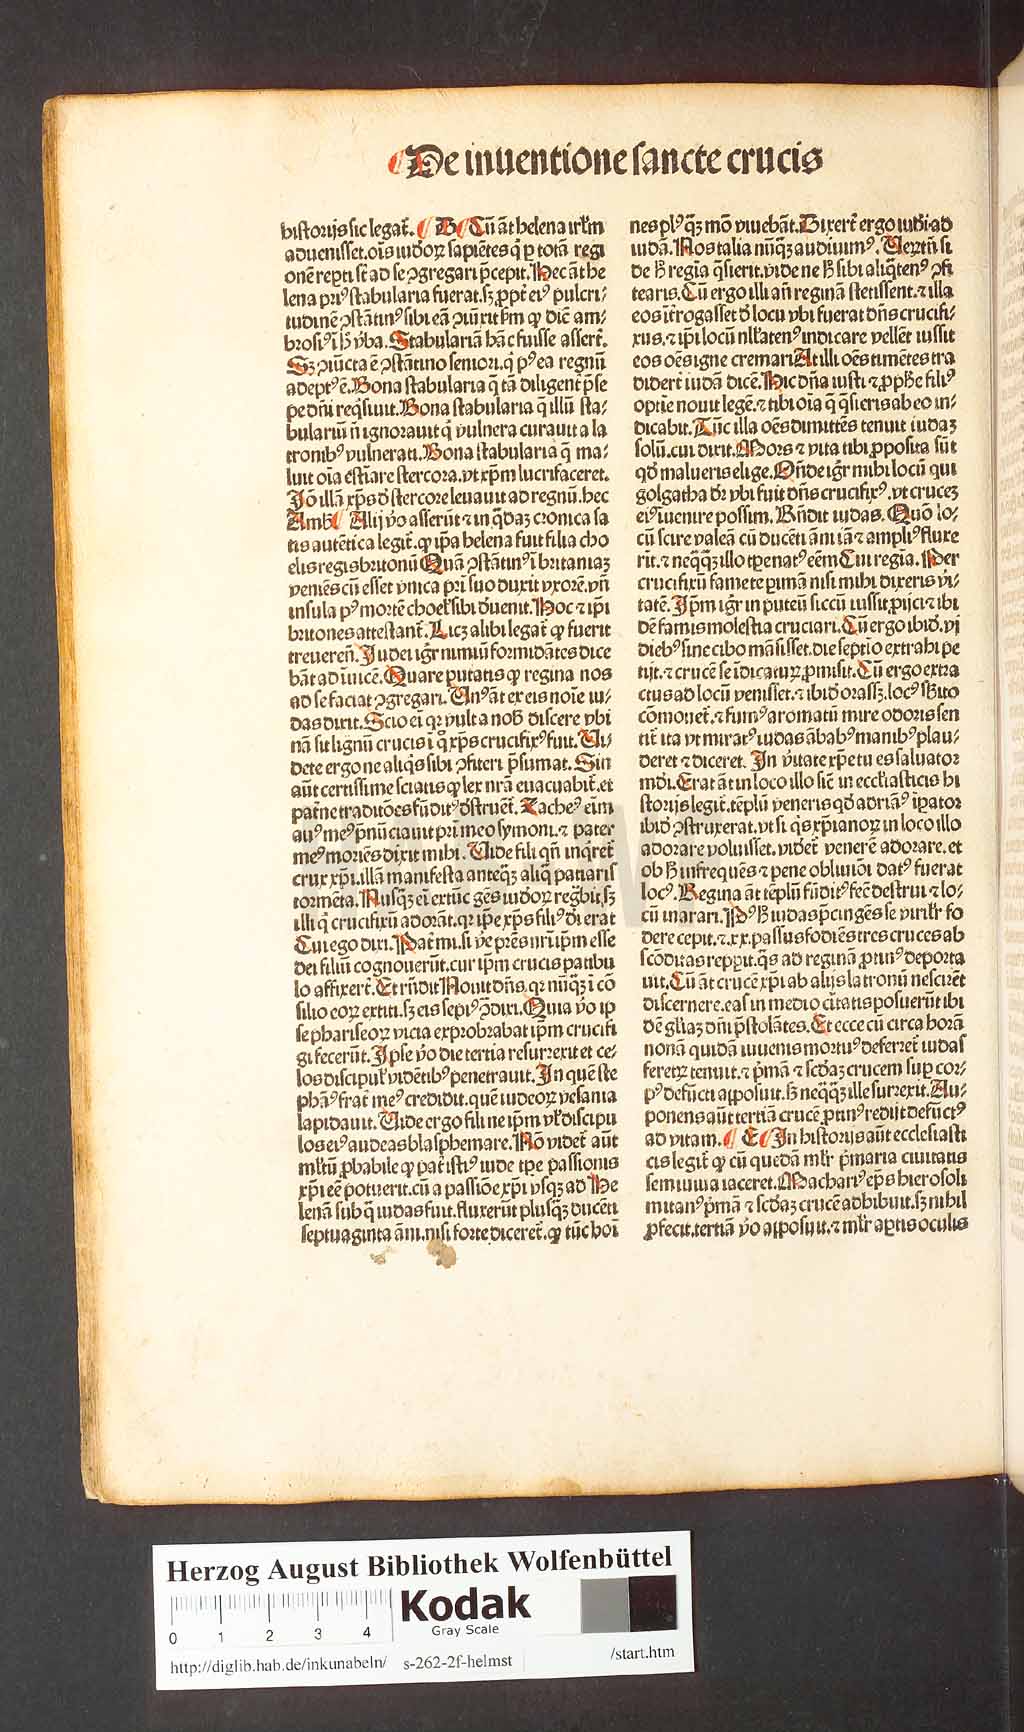 De inuentione sancte crucis
historijs sic legat̃. D Cũ ãt helena irl̃m
aduenisset. oı̃s iudeoꝝ sapiẽtes q̇ ꝑ totã regi
onẽ reꝑti st̃ ad se ꝯgregari p̃cepit. Hec ãt he
lena priꝰ stabularia fuerat. sꝫ ꝓpt̃ eiꝰ pulcri⸗
tudinẽ ꝯstãtinꝰ sibi eã ꝯiũxit. sm̃ ꝙ dic̃ am⸗
brosiꝰ ĩ hꝭ v̾ba. Stabulariã hãc fuisse asserũt.
Sꝫ ꝯiũcta ẽ ꝯstãtino seniori. q̇ pꝰea regnũ
adeptꝰ ẽ. Bona stabularia q̃ tã diligent̾ p̃se
pe dñi req̇siuit. Bona stabularia q̃ illũ sta⸗
bulariũ nõ ignorauit q̇ vulnera curauit a la
tronibꝰ vulnerati. Bona stabularia q̃ ma⸗
luit oı̃a estı̃are stercora. vt xp̃m lucrifaceret.
Jõ illã xp̃s d̾ stercore leuauit ad regnũ. hec
Amb̾. Alij v̾o asserũt ⁊ in q̃dã cronica sa
tis autẽtica legit̃. ꝙ ip̃a helena fuit filia cho
elis regis britonũ Quã ꝯstãtinꝰ ĩ britaniaꝫ
veniẽs cũ esset vnica pr̃i suo duxit vxorẽ. vñ
insula pꝰ mortẽ choel̾ sibi d̾uenit. Hoc ⁊ ip̃i
britones attestant̃. Licꝫ alibi legat̃ ꝙ fuerit
treuereñ. Judei igr̃ nimiũ formidãtes dice
bãt ad ĩuicẽ. Quare putatis ꝙ regina nos
ad se faciat ꝯgregari. Unꝰ ãt ex eis noı̃e iu⸗
das dixit. Scio em̃ qꝛ vult a nob̾ discere vbi
nã sit lignũ crucis ĩ q̊ xp̃s crucifixꝰ fuit. Ui⸗
dete ergo ne aliq̇s sibi ꝯfiteri p̃sumat. Sin
aũt certissime sciatis ꝙ lex nr̃a euacuabit̃. et
pat̾ne traditões fũditꝰ d̾struẽt̃. Zacheꝰ eñı
auꝰ meꝰ p̃nũciauit pr̃i meo symoni. ⁊ pater
meꝰ moriẽs dixit mihi. Uide fili qñ inq̇ret̃
crux xp̃i. illã manifesta anteq̃ꝫ aliq̃ patiaris
tormẽta. Nusq̃ꝫ em̃ extũc gẽs iudeoꝝ regñbit. sꝫ
illi q̇ crucifixũ adorãt. qꝛ ip̃e xp̃s filiꝰ d̾i erat
Cui ego dixi. Pat̾ mi. si v̾e p̃res nr̃i ip̃m esse
dei filiũ cognouerũt. cur ip̃m crucis patibu
lo affixerũt. Et rñdit Nouit dñs. qꝛ nũq̃ꝫ ĩ cõ
silio eoꝝ extiti. sꝫ eis sepiꝰ ꝯdixi. Quia v̾o ip
se phariseoꝝ vicia exprobrabat ip̃m crucifi
gi fecerũt. Jpse v̾o die tertia resurrexit et ce⸗
los discipul̾ vidẽtibꝰ penetrauit. In quẽ ste
phãꝰ frat̾ meꝰ credidit. quẽ iudeoꝝ vesania
lapidauit. Uide ergo fili ne ip̃m vl̾ discipu
los eiꝰ audeas blasphemare. Nõ videt̃ aũt
ml̾tũ ꝓbabile ꝙ pat̾ istiꝰ iude tp̃e passionis
xp̃i eẽ potuerit. cũ a passiõe xp̃i vsq̃ꝫ ad He
lenã sub q̃ iudas fuit. fluxerũt plusq̃ꝫ ducẽti
septuaginta ãni. nisi forte diceret̃. ꝙ tũc hoı̃
nes plꝰ q̃ꝫ mõ viuebãt. Dixerũt ergo iudei ad
iudã. Nos talia nũq̃ꝫ audiuimꝰ. Uerũtñ si
de hꝭ regia q̇sierit. vide ne hꝭ sibi aliq̃tenꝰ ꝯfi
tearis. Cũ ergo illi añ reginã stetissent. ⁊ illa
eos ĩt̾rogasset d̾ loco vbi fuerat dñs crucifi⸗
xus. ⁊ ip̃i locũ nll̾atenꝰ indicare vellẽt iussit
eos oẽs igne cremari At illi oẽs timẽtes tra
diderũt iudã dicẽ. Hic dña iusti ⁊ ꝓphe filiꝰ
optı̃e nouit legẽ. ⁊ tibi oı̃a q̃ q̇sieris ab eo in⸗
dicabit. Tũc illa oẽs dimittẽs tenuit iudaꝫ
solũ. cui dixit. Mors ⁊ vita tibi ꝓposita sũt
qđ malueris elige. Oñde igr̃ mihi locũ qui
golgatha dr̃ vbi fuit dñs crucifixꝰ. vt cruceꝫ
eiꝰ iuenire possim. Rñdit iudas. Quõ lo⸗
cũ scire valeã cũ ducẽti ãni iã ⁊ ampliꝰ fluxe
rĩt. ⁊ neq̃q̃ꝫ illo tp̃e natꝰ eẽm Cui regĩa. Per
crucifixũ fame te ꝑimã nisi mihi dixeris v̾i⸗
tatẽ. Jp̃m igr̃ in puteũ siccũ iussit ꝓijci ⁊ ibi
dẽ famis molestia cruciari. Cũ ergo ibidẽ. vj
diebꝰ sine cibo mãsisset. die septio extrahi pe
tijt. ⁊ crucẽ se ĩdicaturꝫ ꝓmisit. Cũ ergo extra
ctus ad locũ venisset. ⁊ ibidẽ orassꝫ. locꝰ sb̾ito
cõmouet̃. ⁊ fumꝰ aromatũ mire odoris sen
tit̃ ita vt miratꝰ iudas ãbabꝰ manibꝰ plau⸗
deret ⁊ diceret. In v̾itate xp̃e tu es saluator
mdi. Erat ãt in loco illo sic̃ in eccl̾iasticis hi
storijs legit̃. tẽplũ veneris qđ adriãꝰ ip̃ator
ibidẽ ꝯstruxerat. vt si q̇s xp̃ianoꝝ in loco illo
adorare voluisset. videret̃ venerẽ adorare. et
ob hꝭ infrequẽs ⁊ pene obliuiõi datꝰ fuerat
locꝰ. Regina ãt tẽplũ fũditꝰ fec̃ destrui ⁊ lo⸗
cũ inarari. Pꝰ hꝭ iudas p̃cingẽs se viril̾r fo
dere cepit. ⁊ .xx. passus fodiẽs tres cruces ab
scõditas repꝑit. q̇s ad reginã ꝓtinꝰ deporta
uit. Cũ ãt crucẽ xp̃i ab alijs latronũ nescirẽt
discernere. eas in medio ciuitatis posuerũt ibi
dẽ gl̾iaꝫ dñi p̃stolãtes. Et ecce cũ circa horã
nonã quidã iuuenis mortuꝰ deferret̃ iudas
feretꝝ tenuit. ⁊ p̾mã ⁊ scđaꝫ crucem suꝑ cor⸗
pꝰ defũcti apposuit. sꝫ neq̃q̃ꝫ ille surrexit. Ap⸗
ponens aũt tertiã crucẽ ꝓtinꝰ redijt defũctꝰ
ad vitam. E In historijs aũt ecclesiasti
cis legit̃ ꝙ cũ quedã ml̾r p̾maria ciuitatis
semiuiua iaceret. Machariꝰ ep̃s hierosoli
mitanꝰ p̾mã ⁊ scđaꝫ crucẽ adhibuit. sꝫ nihil
ꝓfecit. tertiã v̾o apposuit. ⁊ ml̾r aꝑtis oculis
Herzog August Bibliothek Wolfenbüttel
0 1 2 3 4
Kodak
Gray Scale
http://diglib.hab.de/inkunabeln/ s-262-2f-helmst /start.htm